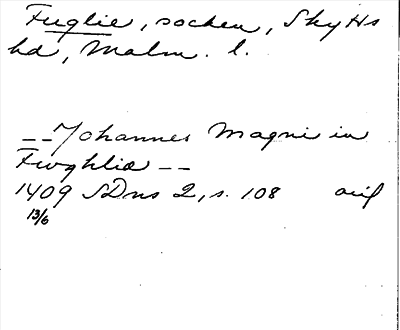 Fuglie, socken, Skytts
hd, Malm. l.
__ Johannes Magni in
Fwghlia __
1409 SDns 2, s. 108 avil
13/6